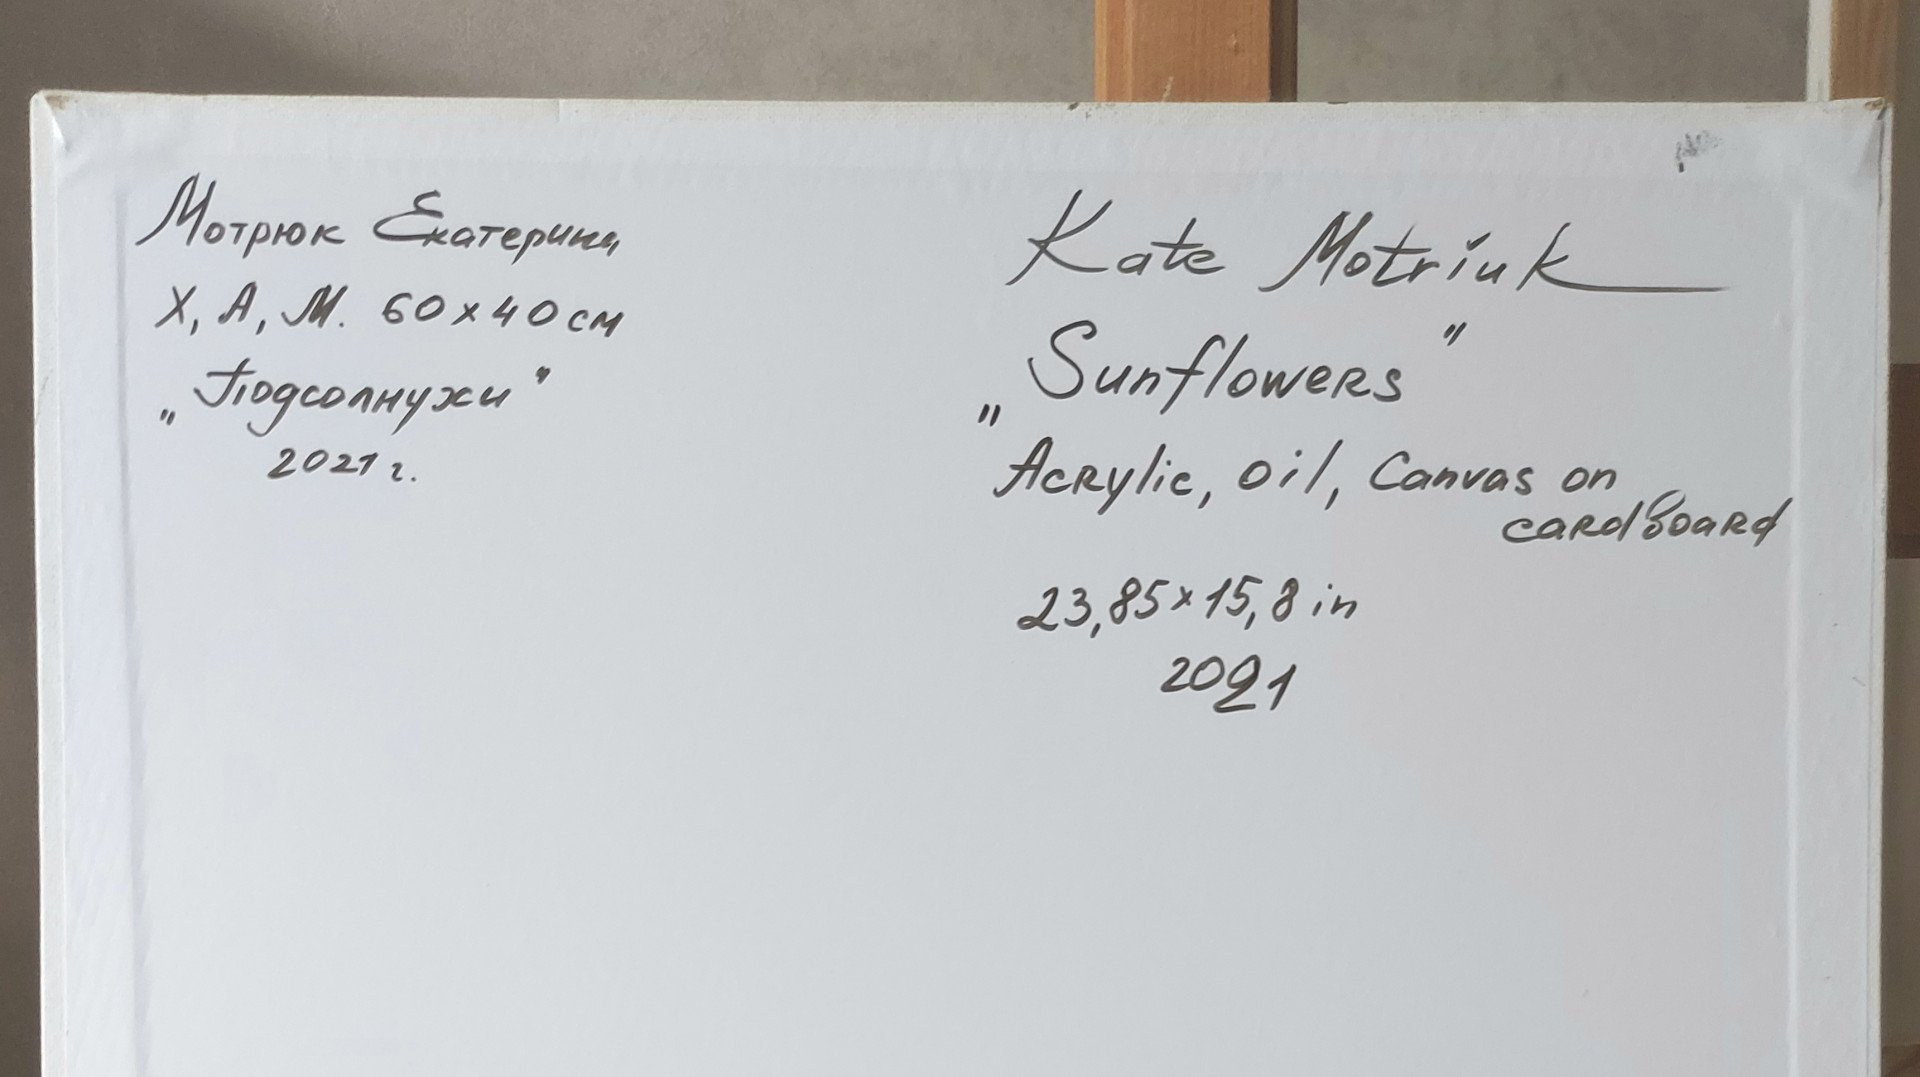 Мотрюк Екатерина
Х, А, М. 60x40 см
„Подсолнухи"
2021 г.
Kate Motriuk
„Sunflowers"
Acrylic, oil, Canvas on
cardboard
23,85x15,8 in
2021